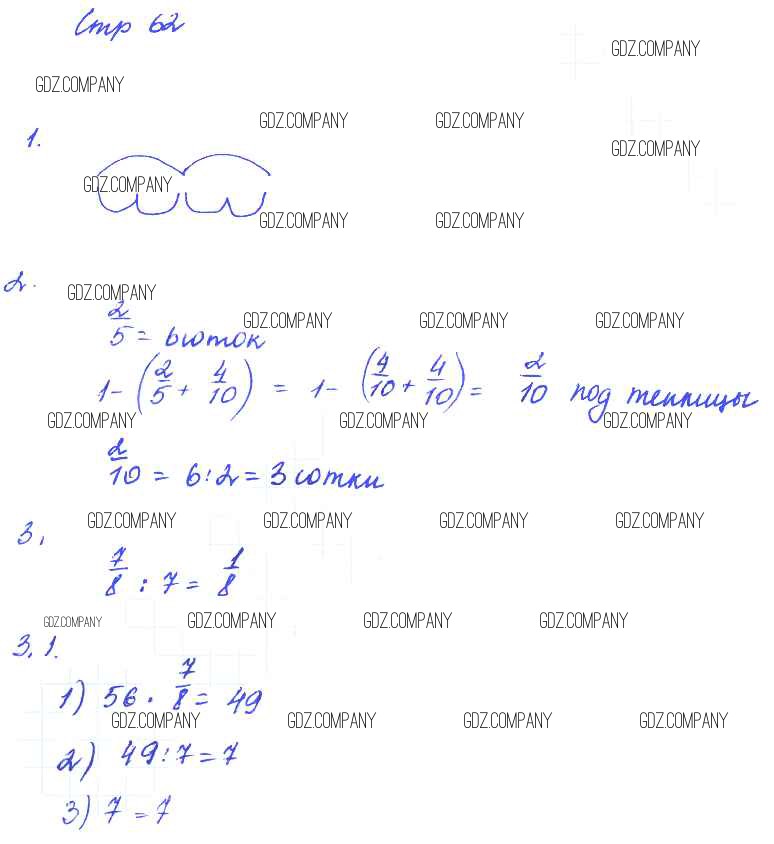 Стр 62
GDZ.COMPANY
GDZ.COMPANY
GDZ.COMPANY GDZ.COMPANY
1.
GDZ.COMPANY
GDZ.COMPANY
GDZ.COMPANY GDZ.COMPANY
2.
GDZ.COMPANY
GDZ.COMPANY GDZ.COMPANY GDZ.COMPANY
2/5 = 6 соток
1 - (2/5 + 4/10) = 1 - (4/10 + 4/10) = 2/10 под теплицы
GDZ.COMPANY GDZ.COMPANY GDZ.COMPANY
2/10 = 6:2 = 3 сотки
3. GDZ.COMPANY GDZ.COMPANY GDZ.COMPANY GDZ.COMPANY
7/8 : 7 = 1/8
GDZ.COMPANY GDZ.COMPANY GDZ.COMPANY GDZ.COMPANY
3.1.
1) 56 · 7/8 = 49
GDZ.COMPANY GDZ.COMPANY GDZ.COMPANY GDZ.COMPANY
2) 49:7=7
3) 7=7